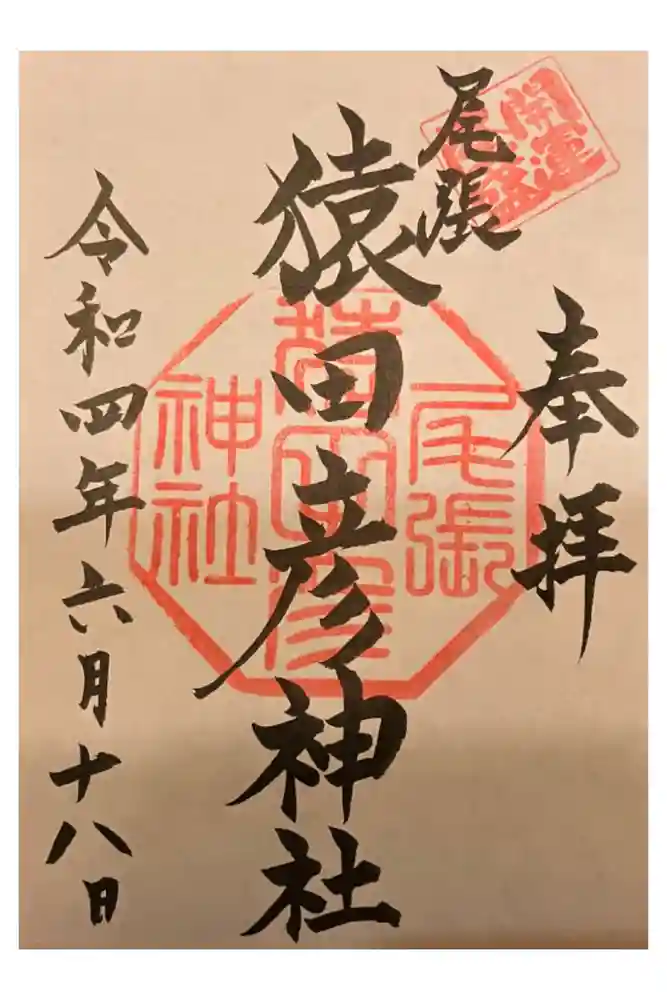 開運
奉拝
尾張
猿田彦神社
尾張
猿田彦
神社
令和四年六月十八日